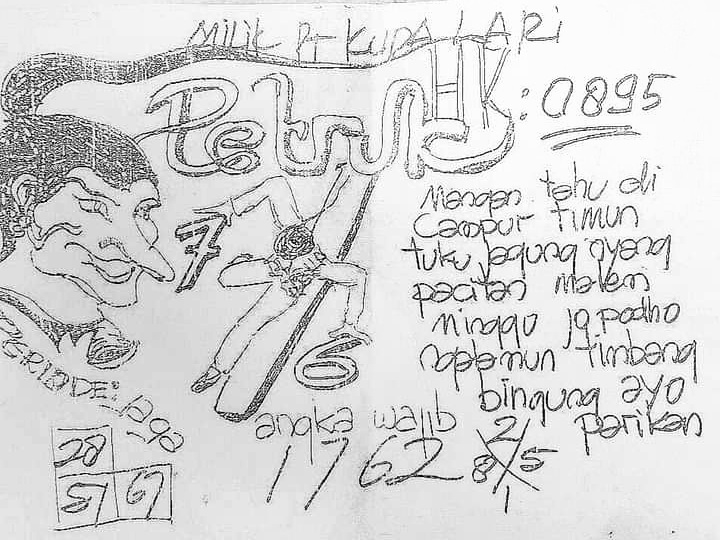 Milik Pt KUDA LARI
Petruk
HK: 0895
Mangan tahu di
campur timun
tuku jagung nyang
pacitan malem
minggu jg podho
ngelamun timbang
bingung ayo
parikan
7
6
PERIODE: Jaga
angka wajib
1762
2
8 5
1
28
13 67